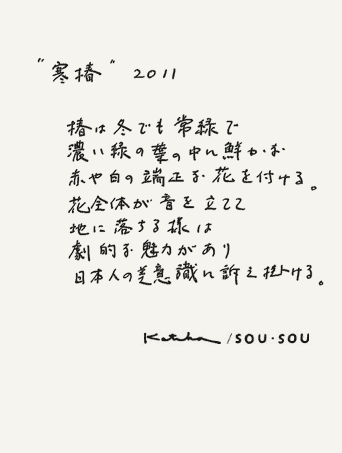 "寒椿" 2011
椿は冬でも常緑で
濃い緑の葉の中に鮮かな
赤や白の端正な花を付ける。
花全体が音を立てて
地に落ちる様は
劇的な魅力があり
日本人の美意識に訴え掛ける。
Katsuji / SOU・SOU